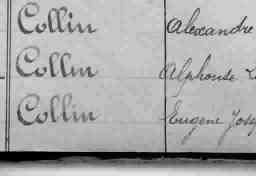 Collin Alexandre
Collin Alphonse
Collin Eugène